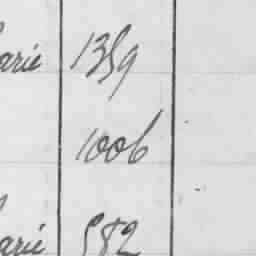 arie 1359
1006
arie 582